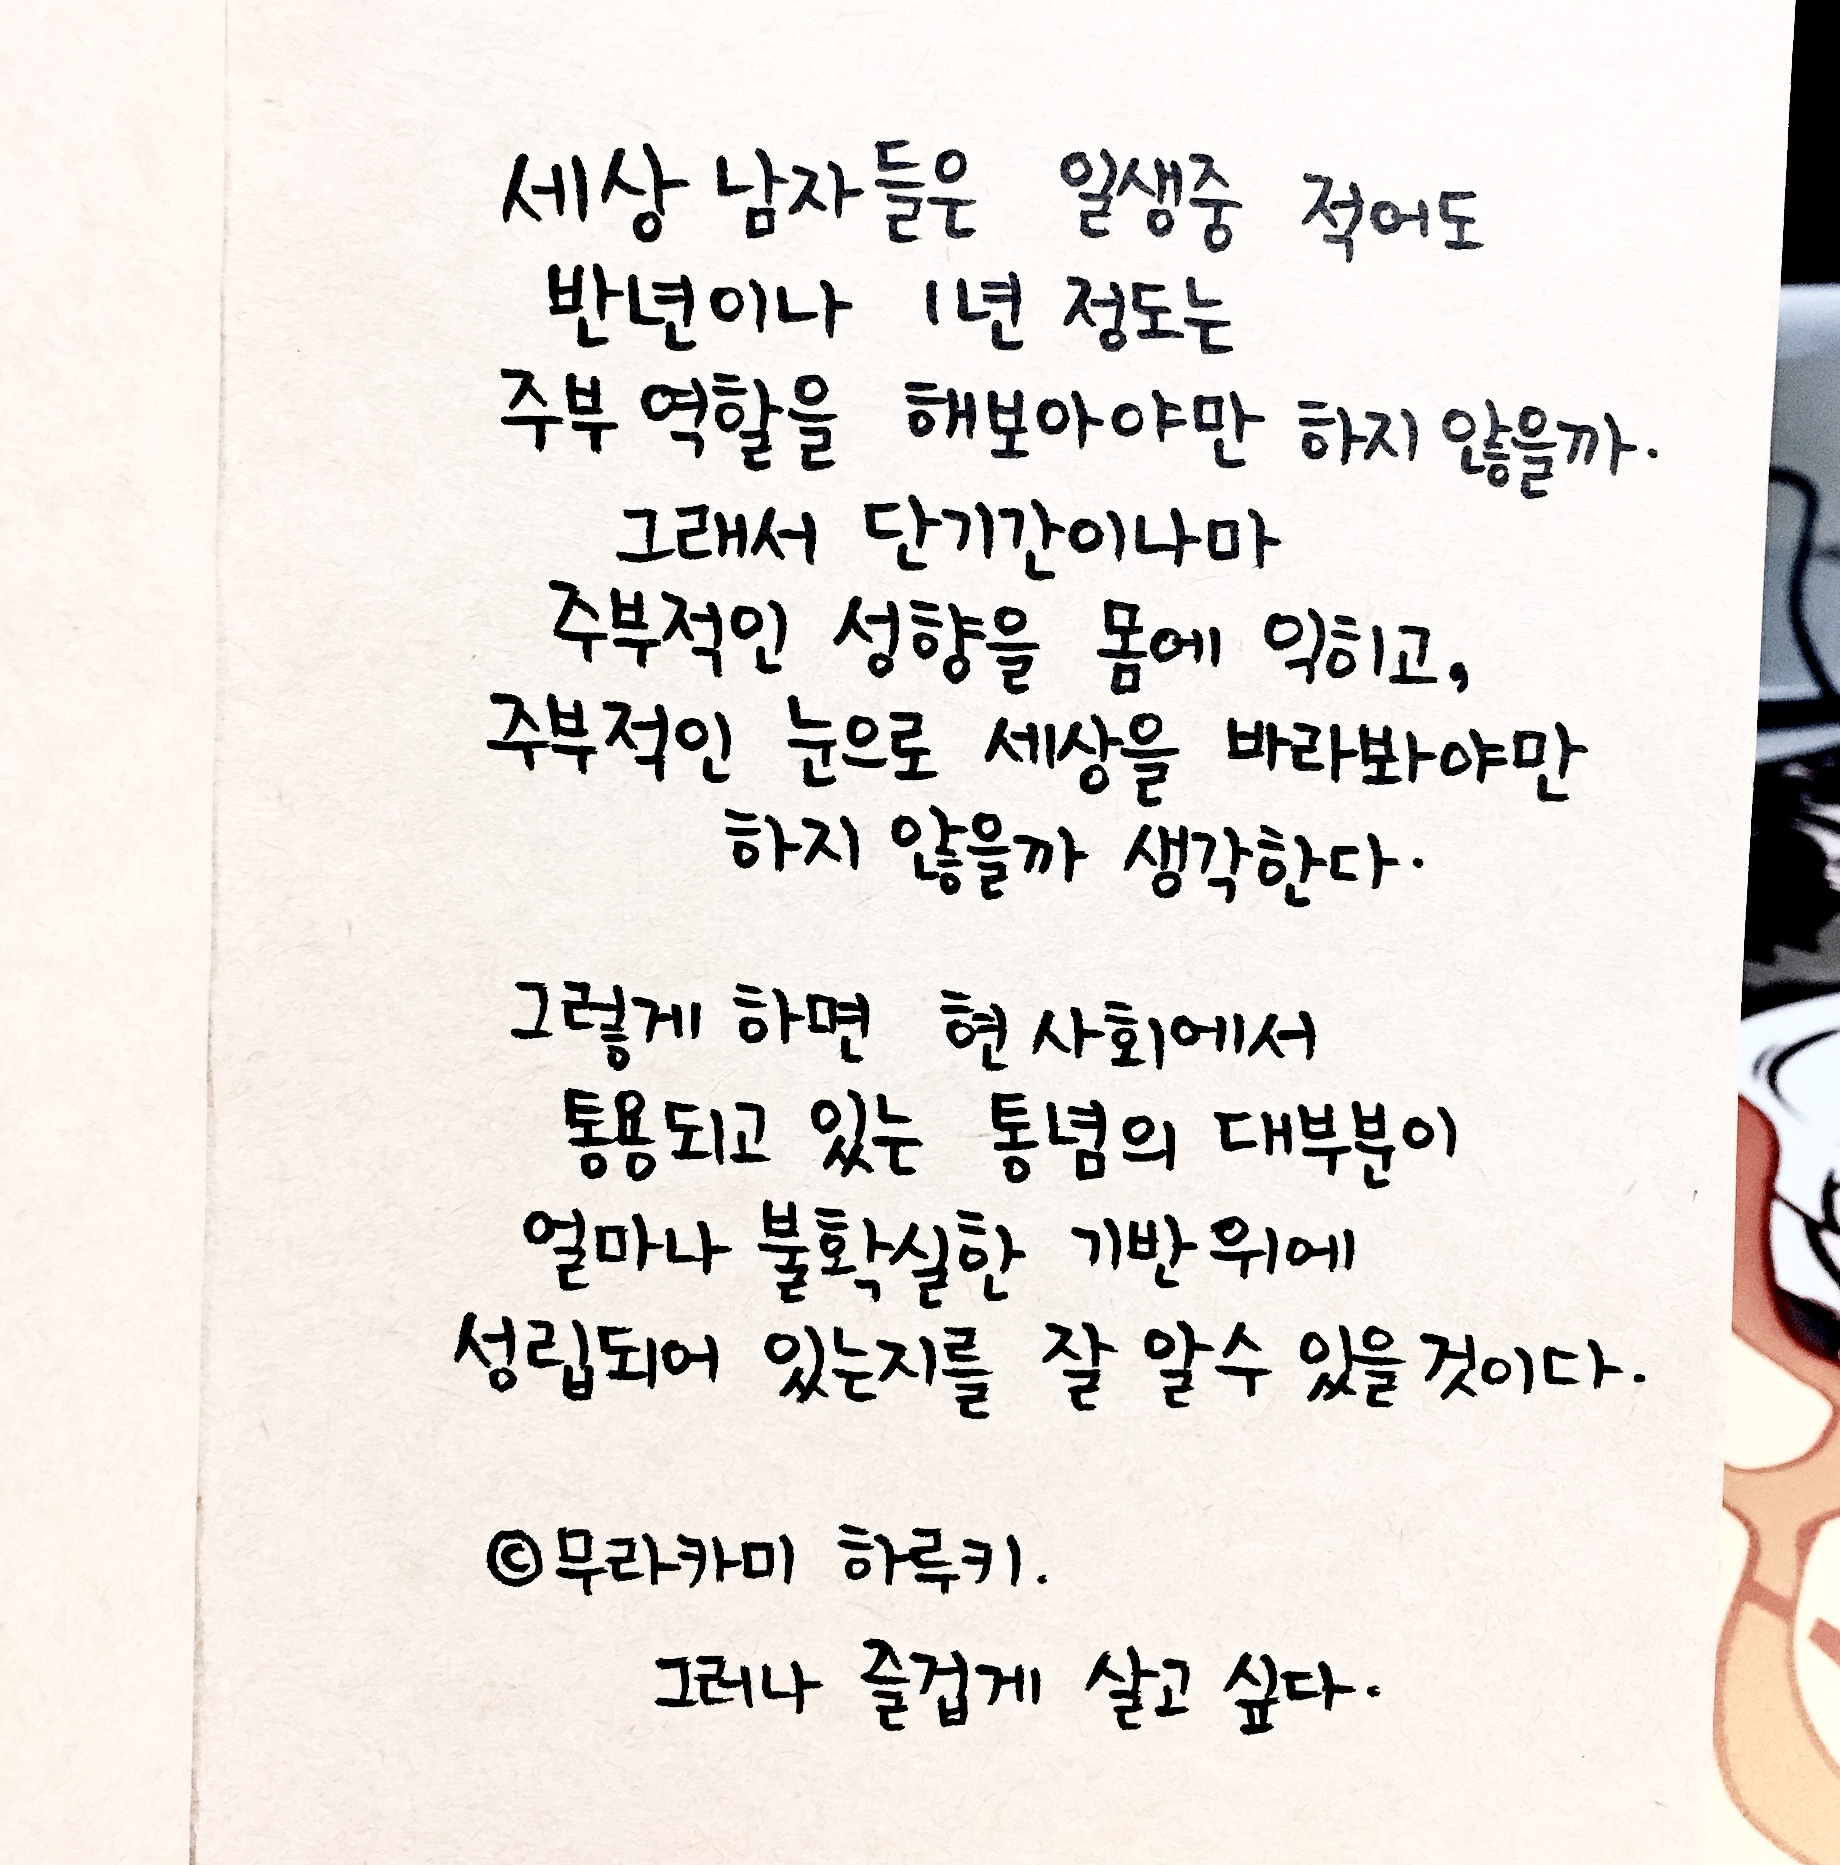 세상 남자들은 일생중 적어도
반년이나 1년 정도는
주부 역할을 해보아야만 하지 않을까.
그래서 단기간이나마
주부적인 성향을 몸에 익히고,
주부적인 눈으로 세상을 바라봐야만
하지 않을까 생각한다.
그렇게 하면 현 사회에서
통용되고 있는 통념의 대부분이
얼마나 불확실한 기반 위에
성립되어 있는지를 잘 알 수 있을 것이다.
©무라카미 하루키.
그러나 즐겁게 살고 싶다.